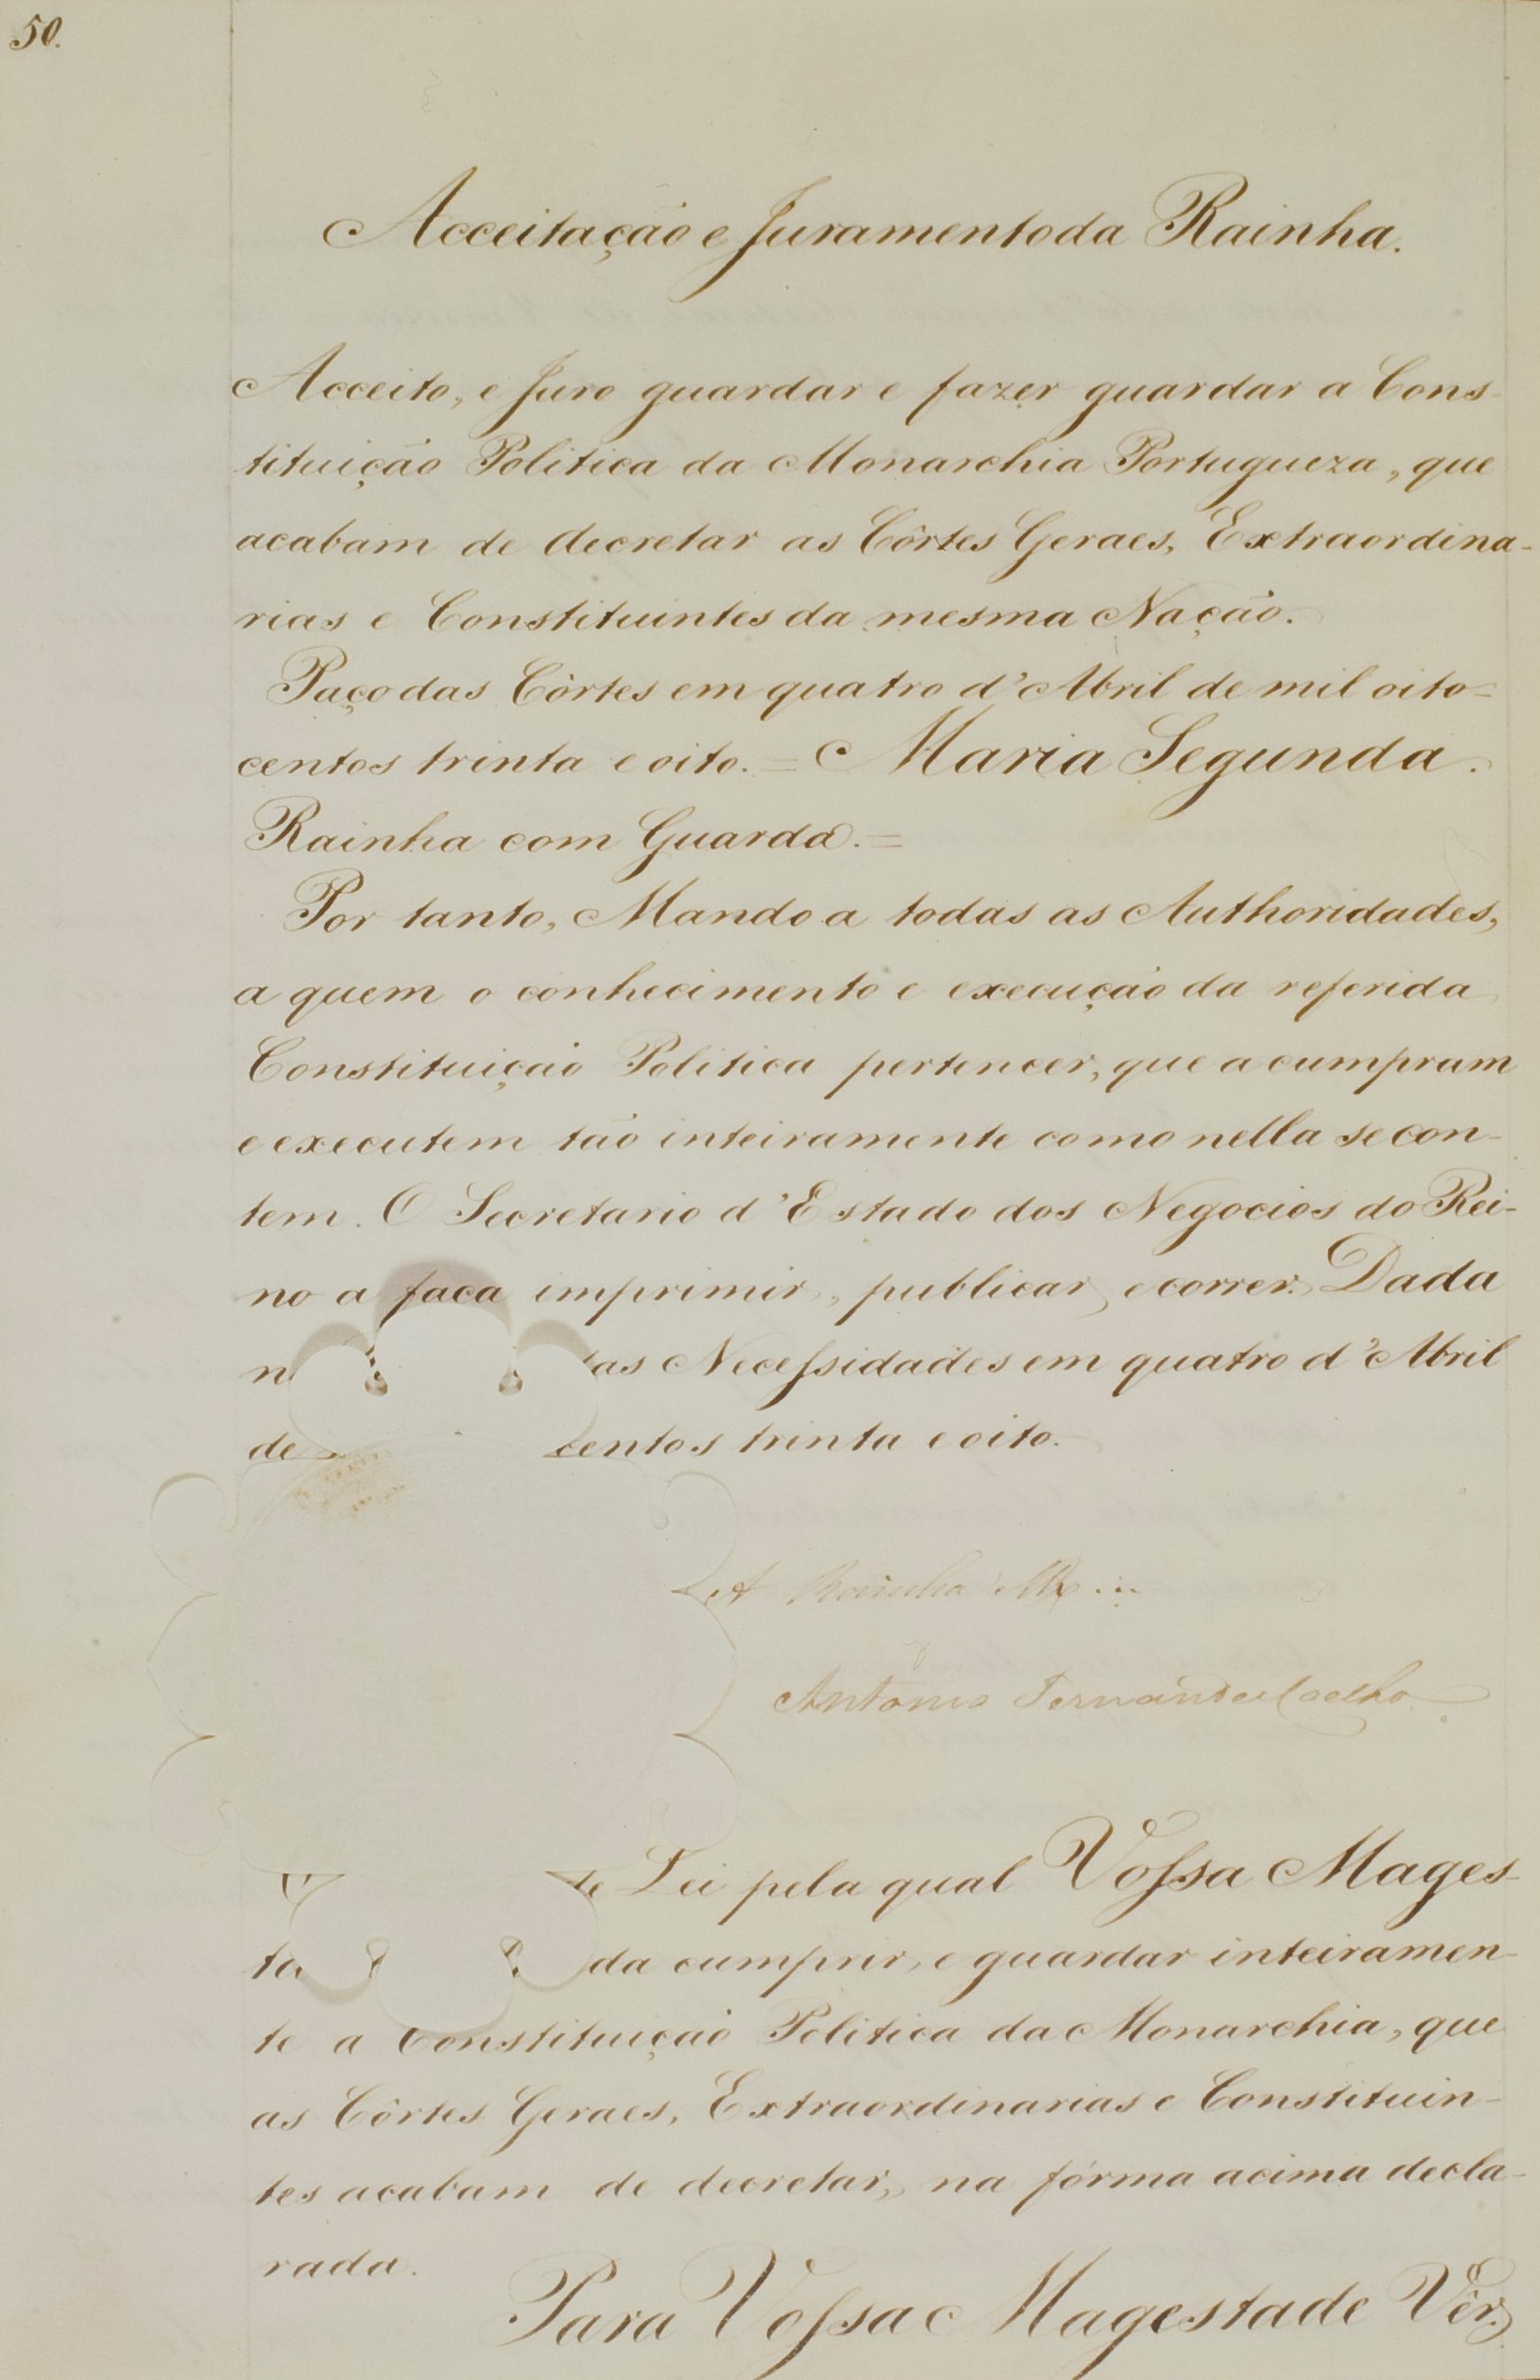 50.
Acceitação e Juramento da Rainha.
Acceito, e Juro guardar e fazer guardar a Cons-
tituição Politica da Monarchia Portugueza, que
acabam de decretar as Côrtes Geraes, Extraordina-
rias e Constituintes da mesma Nação.
Paço das Côrtes em quatro d'Abril de mil oito-
centos trinta e oito. = Maria Segunda.
Rainha com Guarda. =
Por tanto, Mando a todas as Authoridades,
a quem o conhecimento e execução da referida
Constituição Politica pertencer, que a cumpram
e executem tão inteiramente como nella se con-
tem. O Secretario d'Estado dos Negocios do Rei-
no a faça imprimir, publicar, e correr. Dada
n as Necessidades em quatro d'Abril
de centos trinta e oito.
A Rainha
Antonio Fernandes Coelho
te Lei pela qual Vossa Mages-
ta da cumprir, e guardar inteiramen-
te a Constituição Politica da Monarchia, que
as Côrtes Geraes, Extraordinarias e Constituin-
tes acabam de decretar, na fórma acima decla-
rada.
Para Vossa Magestade Vêr.